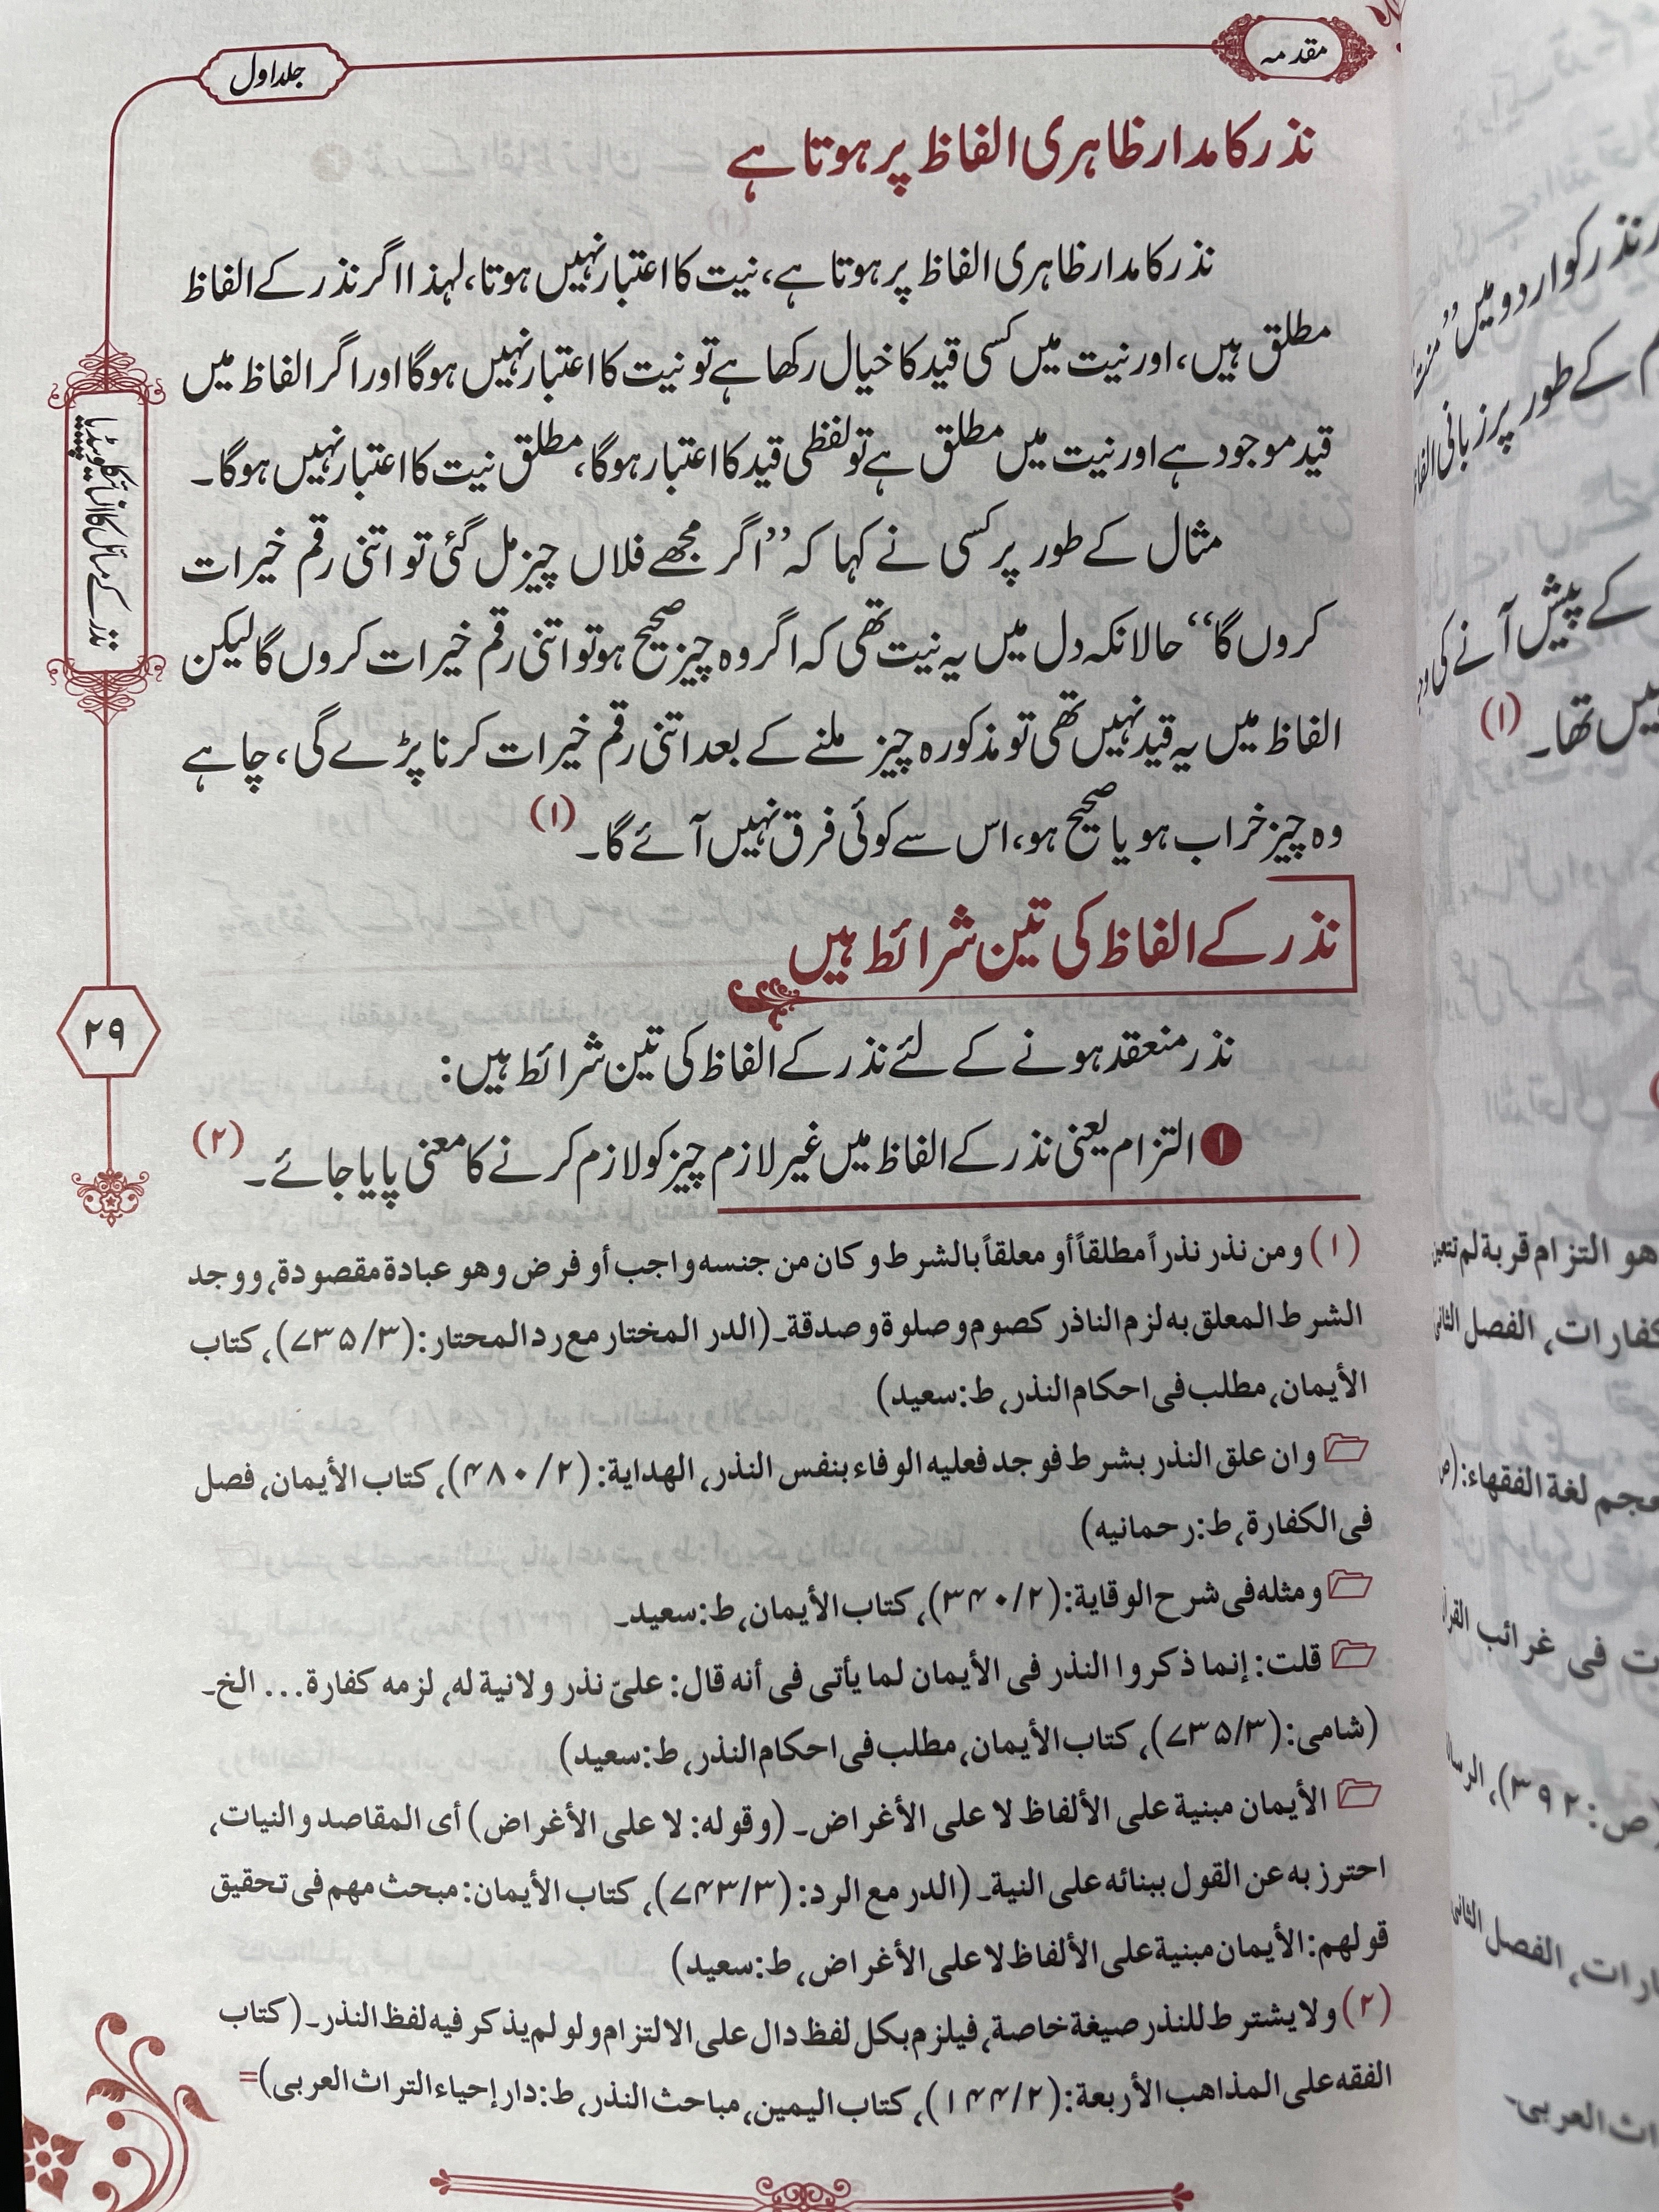 مقدمہ
جلد اول
نذر کا مدار ظاہری الفاظ پر ہوتا ہے
نذر کا مدار ظاہری الفاظ پر ہوتا ہے، نیت کا اعتبار نہیں ہوتا، لہذا اگر نذر کے الفاظ
مطلق ہیں، اور نیت میں کسی قید کا خیال رکھا ہے تو نیت کا اعتبار نہیں ہوگا اور اگر الفاظ میں
قید موجود ہے اور نیت میں مطلق ہے تو لفظی قید کا اعتبار ہوگا، مطلق نیت کا اعتبار نہیں ہوگا۔
مثال کے طور پر کسی نے کہا کہ ”اگر مجھے فلاں چیز مل گئی تو اتنی رقم خیرات
کروں گا“ حالانکہ دل میں یہ نیت تھی کہ اگر وہ چیز صحیح ہو تو اتنی رقم خیرات کروں گا لیکن
الفاظ میں یہ قید نہیں تھی تو مذکورہ چیز ملنے کے بعد اتنی رقم خیرات کرنا پڑے گی، چاہے
وہ چیز خراب ہو یا صحیح ہو، اس سے کوئی فرق نہیں آئے گا۔ (۱)
نذر کے الفاظ کی تین شرائط ہیں
نذر منعقد ہونے کے لئے نذر کے الفاظ کی تین شرائط ہیں:
۱ التزام یعنی نذر کے الفاظ میں غیر لازم چیز کو لازم کرنے کا معنی پایا جائے۔ (۲)
(۱) ومن نذر نذراً مطلقاً أو معلقاً بالشرط وكان من جنسه واجب أو فرض وهو عبادة مقصودة، ووجد
الشرط المعلق به لزم الناذر كصوم وصلوة وصدقة۔ (الدر المختار مع رد المحتار: (۳/۷۳۵)، كتاب
الأيمان، مطلب فى احكام النذر، ط: سعيد)
وان علق النذر بشرط فوجد فعليه الوفاء بنفس النذر، الهداية: (۲/۴۸۰)، كتاب الأيمان، فصل
فى الكفارة، ط: رحمانيه)
ومثله فى شرح الوقاية: (۲/۳۴۰)، كتاب الأيمان، ط: سعيد۔
قلت: إنما ذكروا النذر فى الأيمان لما يأتى فى أنه قال: علىّ نذر ولا نية له، لزمه كفارة... الخ۔
(شامى: (۳/۷۳۵)، كتاب الأيمان، مطلب فى احكام النذر، ط: سعيد)
الأيمان مبنية على الألفاظ لا على الأغراض۔ (وقوله: لا على الأغراض) أى المقاصد والنيات،
احترز به عن القول ببنائه على النية۔ (الدر مع الرد: (۳/۷۴۳)، كتاب الأيمان: مبحث مهم فى تحقيق
قولهم: الأيمان مبنية على الألفاظ لا على الأغراض، ط: سعيد)
(۲) ولا يشترط للنذر صيغة خاصة، فيلزم بكل لفظ دال على الالتزام ولو لم يذكر فيه لفظ النذر۔ (كتاب
الفقه على المذاهب الأربعة: (۲/۱۴۴)، كتاب اليمين، مباحث النذر، ط: دار إحياء التراث العربى)=
نذر کے مسائل کا انسائیکلوپیڈیا
۲۹
نذر کو اردو میں
کے طور پر زبانی
کے پیش آنے کی
(۱)
هو التزام قربة لم تتعين
كفارات، الفصل الثانى
معجم لغة الفقهاء:
فى غرائب القرآن
(ص: ۳۹۲)،
الفصل الثانى